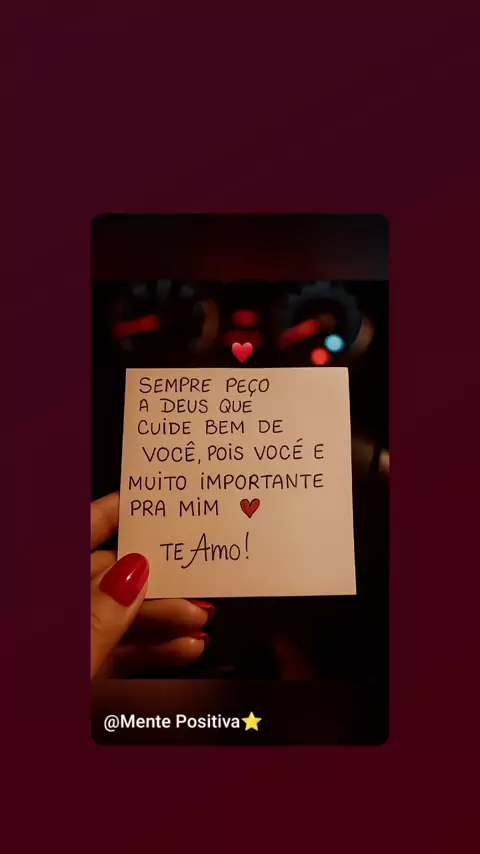 SEMPRE PEÇO
A DEUS QUE
CUIDE BEM DE
VOCÊ, POIS VOCÉ E
MUITO IMPORTANTE
PRA MIM ❤
TE Amo!
@Mente Positiva⭐